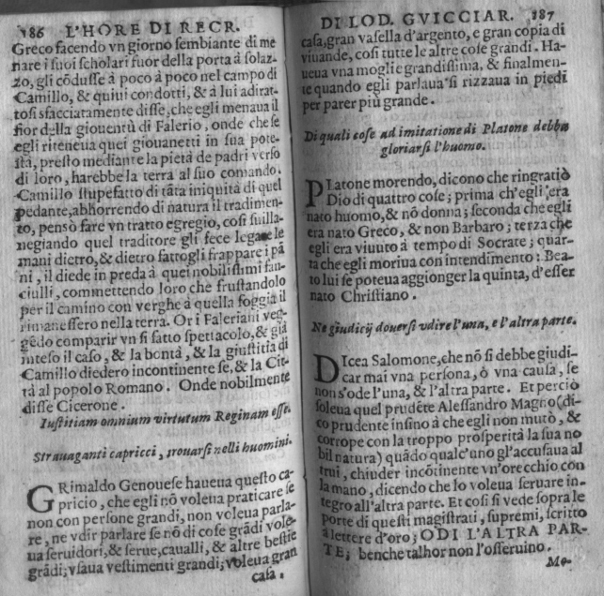 186 L'HORE DI RECR.
Greco facendo vn giorno sembiante di me
nare i suoi scholari fuor della porta à solaz-
zo, gli cōdusse à poco à poco nel campo di
Camillo, & quiui condotti, & à lui adirat-
tosi sfacciatamente disse, che egli menaua il
fior della giouentù di Falerio, onde che se
egli riteneua quei giouanetti in sua pote-
stà, presto mediante la pietà de padri verso
di loro, harebbe la terra al suo comando.
Camillo stupefatto di tāta iniquità di quel
pedante, abhorrendo di natura il tradimen-
to, pensò fare vn tratto egregio, cosi suilla-
neggiando quel traditore gli fece legare le
mani dietro, & dietro fattogli frappare i pā
ni, il diede in preda à quei nobilissimi fan-
ciulli, commettendo loro che frustandolo
per il camino con verghe à quella foggia il
rimanessero nella terra. Or i Faleriani veg-
gēdo comparir vn sì fatto spettacolo, & già
inteso il caso, & la bontà, & la giustitia di
Camillo diedero incontinente se, & la Cit-
tà al popolo Romano. Onde nobilmente
disse Cicerone.
Iustitiam omnium virtutum Reginam esse.
Strauaganti capricci, trouarsi nelli huomini.
GRimaldo Genouese haueua questo ca-
pricio, che egli nō voleua praticare se
non con persone grandi, non voleua parla-
re, ne vdir parlare se nō di cose grādi vole-
ua seruidori, & serue, caualli, & altre bestie
grādi; vsaua vestimenti grandi; voleua gran
casa.
DI LOD. GVICCIAR. 187
casa, gran vasella d'argento, e gran copia di
viuande, cosi tutte le altre cose grādi. Ha-
ueua vna moglie grandissima, & finalmen-
te quando egli parlaua si rizzaua in piedi
per parer più grande.
Di quali cose ad imitatione di Platone debba
gloriarsi l'huomo.
PLatone morendo, dicono che ringratiò
Dio di quattro cose; prima ch'egli era
nato huomo, & nō donna; seconda che egli
era nato Greco, & non Barbaro; terza che
egli era viuuto à tempo di Socrate; quar-
ta che egli moriua con intendimento: Bea-
to lui se poteua aggionger la quinta, d'esser
nato Christiano.
Ne giudicij douersi vdire l'una, e l'altra parte.
DIcea Salomone, che nō si debbe giudi-
car mai vna persona, ò vna causa, se
non s'ode l'una, & l'altra parte. Et perciò
soleua quel prudēte Alessandro Magno (di-
co prudente insino à che egli non mutò, &
corrope con la troppo prosperità la sua no
bil natura) quādo qualc'uno gl'accusaua al
trui, chiuder incōtinente vn'orecchio con
la mano, dicendo che lo voleua seruare in-
tegro all'altra parte. Et cosi si vede sopra le
porte di questi magistrati, supremi, scritto
à lettere d'oro; ODI L'ALTRA PAR-
TE; benche talhor non l'osseruino.
Mo-